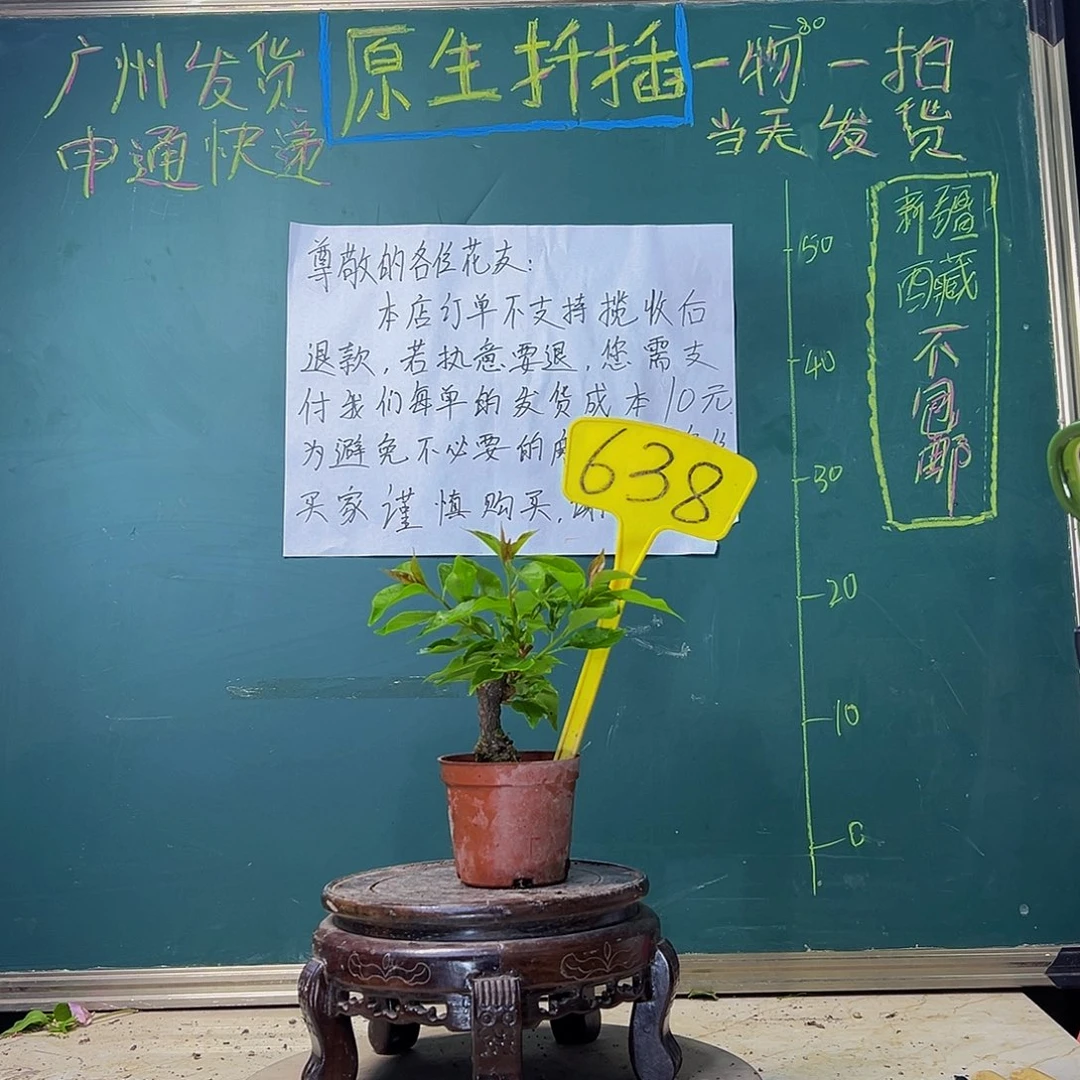 广州发货
原生扦插
一物一拍
80
申通快递
当天发货
新疆
西藏
不
包
邮
尊敬的各位花友:
本店订单不支持揽收后
退款,若执意要退,您需支
付我们每单的发货成本10元
为避免不必要的
买家谨慎购买,
638
50
40
30
20
10
0